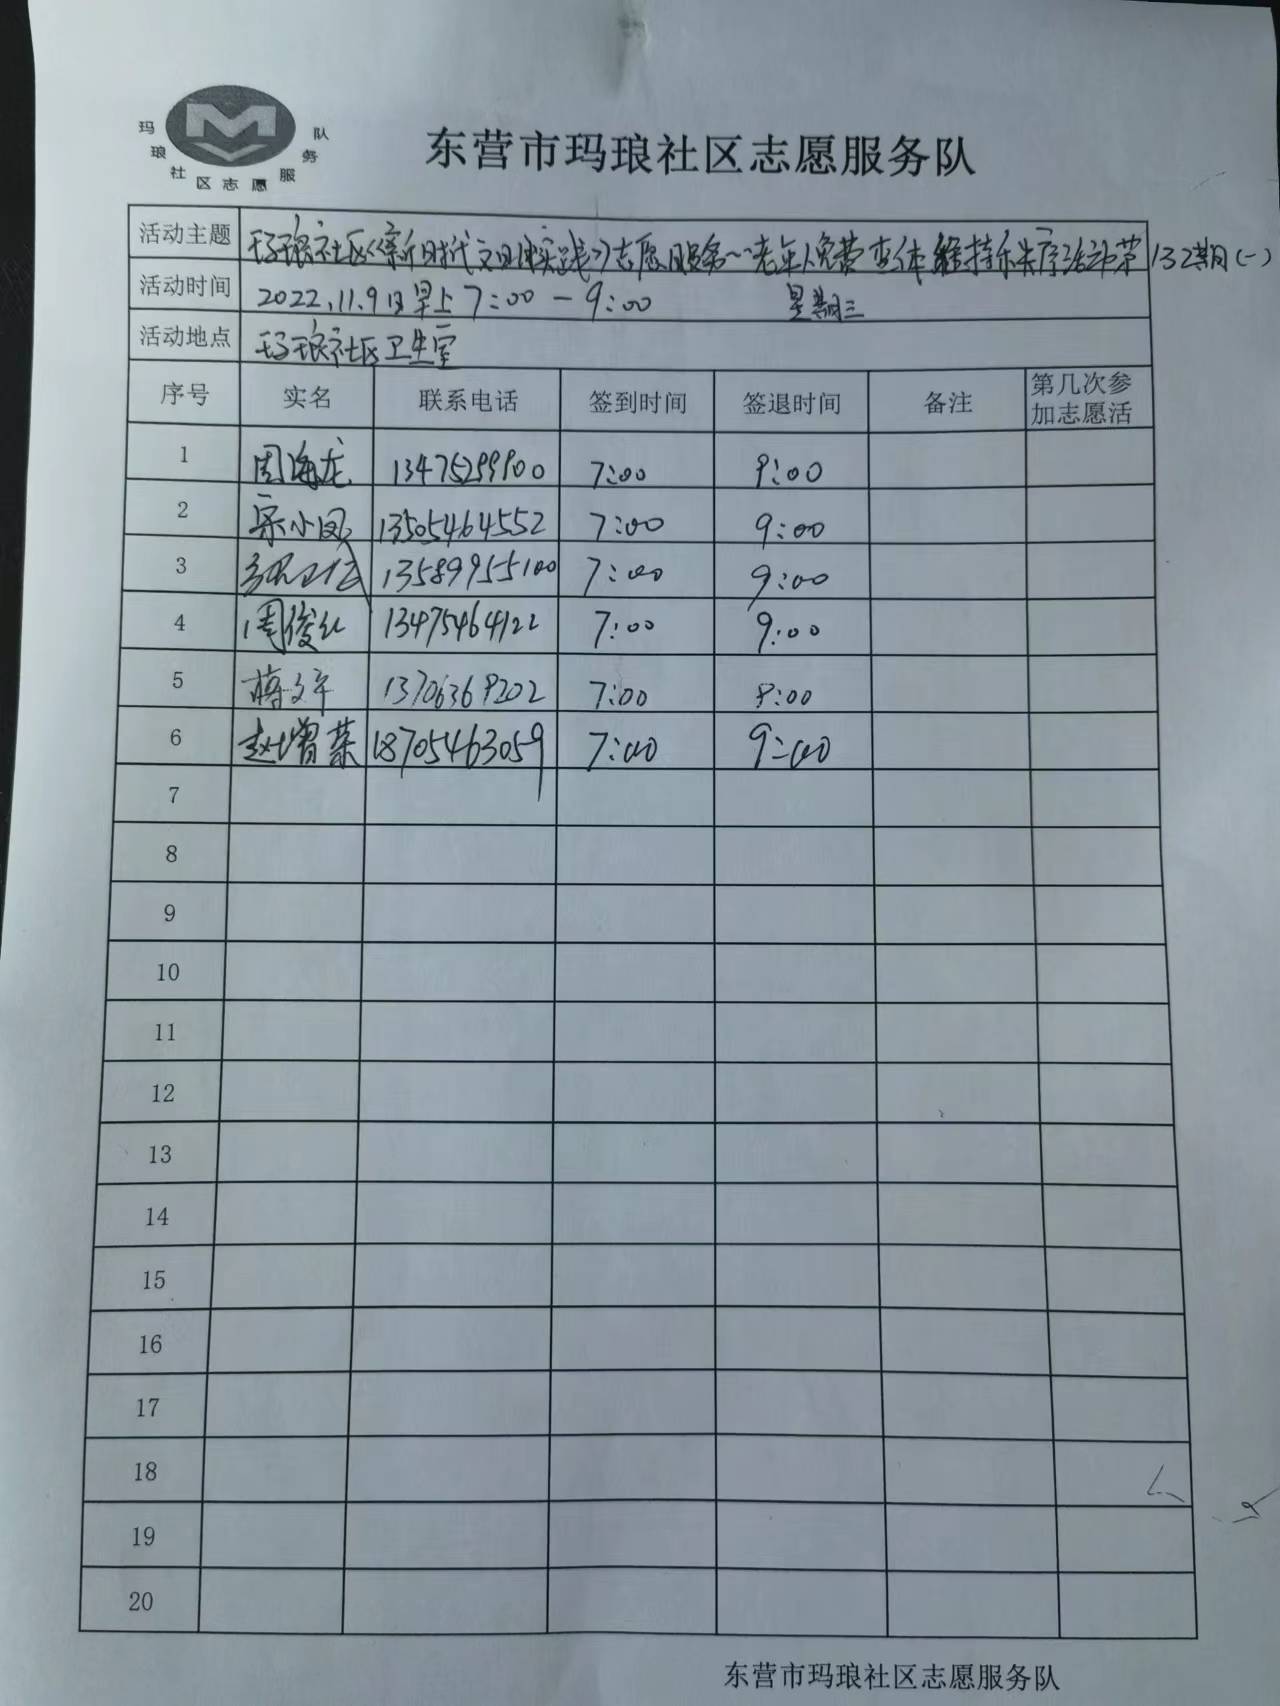 玛琅社区志愿服务队
东营市玛琅社区志愿服务队
活动主题 玛琅社区《新时代文明实践》志愿服务——老年人免费查体维持秩序活动第132期(一)
活动时间 2022.11.9日早上7:00-9:00 星期三
活动地点 玛琅社区卫生室
序号 实名 联系电话 签到时间 签退时间 备注 第几次参加志愿活
1 周海龙 13475299900 7:00 9:00
2 宋小凤 13505464552 7:00 9:00
3 13589955100 7:00 9:00
4 周俊红 13475464122 7:00 9:00
5 蒋文军 13706369202 7:00 9:00
6 赵增荣 18705463059 7:00 9:00
7
8
9
10
11
12
13
14
15
16
17
18
19
20
东营市玛琅社区志愿服务队